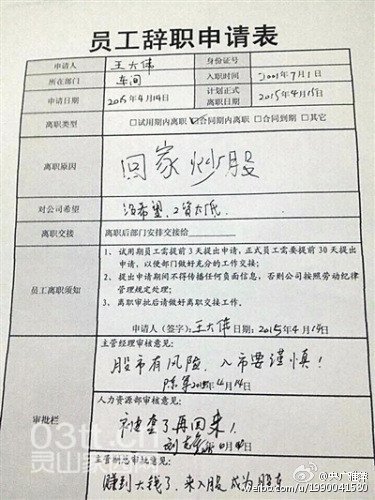 员工辞职申请表
申请人 王大伟 身份证号
所在部门 车间 入职时间 2001年7月1
申请日期 2015年4月14日 计划正式离职日期 2015年4月15日
离职类型 □试用期内离职 ☑合同期内离职 □合同到期 □其它
离职原因 回家炒股
对公司希望 没希望,工资太低.
离职交接 离职后部门安排交接给
员工离职须知
1、试用期员工需提前3天提出申请,正式员工需要提前30天提出
申请,以便部门做好充分的工作交接;
2、提出申请期间不得传播任何负面信息,否则公司按照劳动纪律
管理规定处理;
3、离职审批后请做好离职交接工作.
申请人(签字):王大伟 日期:2015年4月14日
审批栏
主管经理审核意见:
股市有风险,入市要谨慎!
陈军 2015年4月14日
人力资源部审核意见:
到
了再回来!
主管副总审批意见:
赚到大钱了,来入股成为股东
03tt.cn
灵山
@央广浦泳
weibo.com/u/1990041530